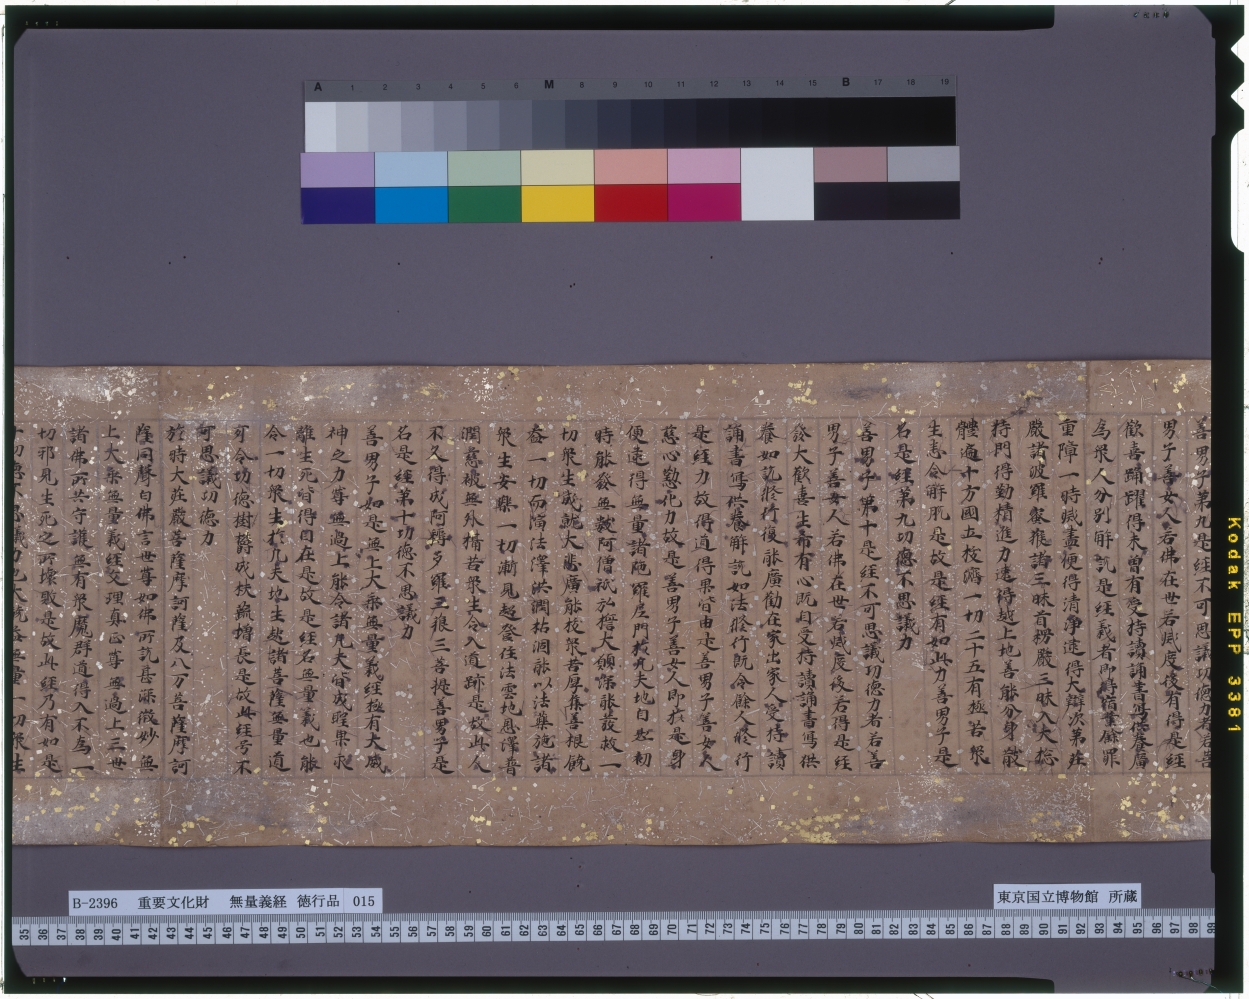 A 1 2 3 4 5 6 M 8 9 10 11 12 13 14 15 B 17 18 19
善男子第九是経不可思議功徳力者若善
男子善女人若佛在世若滅度後有得是経
歓喜踊躍得未曽有受持讀誦書寫供養廣
為衆人分別解説是経義者即時宿業餘罪
重障一時滅盡便得清淨逮得大辯次第荘
嚴諸波羅蜜獲諸三昧首楞嚴三昧入大捴
持門得勤精進力速得越上地善能分身散
體遍十方國土抜濟一切二十五有極苦衆
生悉令解脱是故是経有如此力善男子是
名是経第九功徳不思議力
善男子第十是経不可思議功徳力者若善
男子善女人若佛在世若滅度後若得是経
發大歓喜生希有心既自受持讀誦書寫供
養如説修行復能廣勧在家出家人受持讀
誦書寫供養解説如法修行既令餘人修行
是経力故得道得果皆由是善男子善女人
慈心懃化力故是善男子善女人即於是身
便逮得無量諸陁羅尼門於凡夫地自然初
時能發無數阿僧祇弘擔大願深能發救一
切衆生成就大悲廣能抜衆苦厚集善根饒
益一切而演法澤洪潤枯涸能以法藥施諸
衆生安樂一切漸見超登住法雲地恩澤普
潤慈被無外攝苦衆生令入道跡是故此人
不久得成阿耨多羅三藐三菩提善男子是
名是経第十功徳不思議力
善男子如是無上大乗無量義経極有大威
神之力尊無過上能令諸凡夫皆成聖果永
離生死皆得自在是故是経名無量義也能
令一切衆生於凡夫地生起諸菩薩無量道
可令功徳樹欝茂扶疏増長是故此経号不
可思議功徳力
於時大荘嚴菩薩摩訶薩及八万菩薩摩訶
薩同聲白佛言世尊如佛所説甚深微妙無
上大乗無量義経文理真正尊無過上三世
諸佛所共守護無有衆魔群道得入不為一
切邪見生死之所壊敗是故此経乃有如是
B-2396 重要文化財 無量義経 徳行品 015
東京国立博物館 所蔵
35 36 37 38 39 40 41 42 43 44 45 46 47 48 49 50 51 52 53 54 55 56 57 58 59 60 61 62 63 64 65 66 67 68 69 70 71 72 73 74 75 76 77 78 79 80 81 82 83 84 85 86 87 88 89 90 91 92 93 94 95 96 97 98 99
Kodak EPP 3381